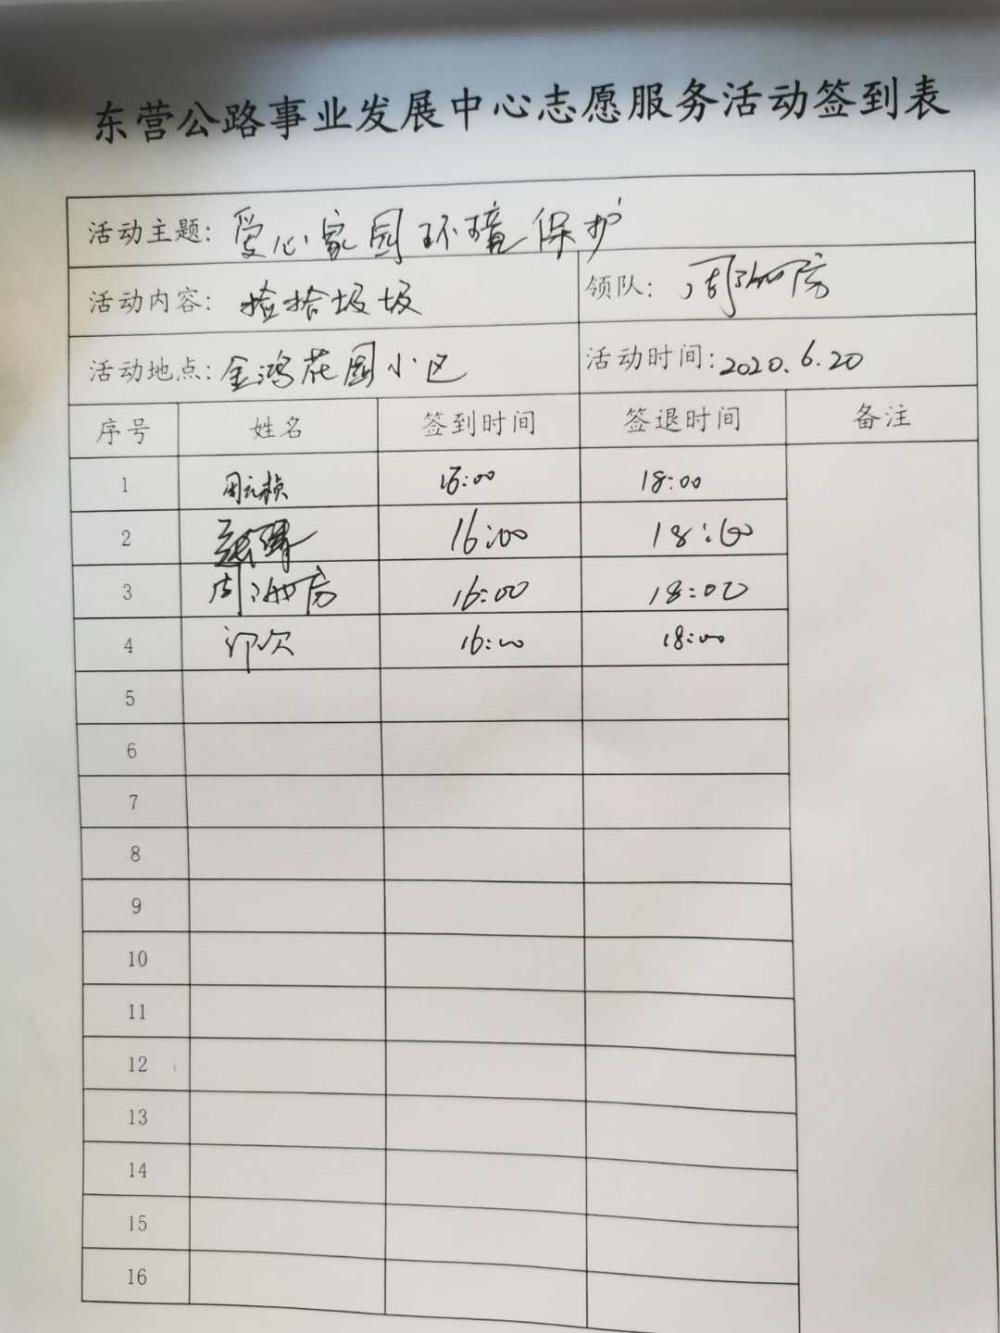 东营公路事业发展中心志愿服务活动签到表
活动主题: 爱心家园环境保护
活动内容: 捡拾垃圾 领队: 周
活动地点: 金鸿花园小区 活动时间: 2020.6.20
序号 姓名 签到时间 签退时间 备注
1 周元桢 16:00 18:00
2 16:00 18:00
3 周 16:00 18:00
4 16:00 18:00
5
6
7
8
9
10
11
12
13
14
15
16